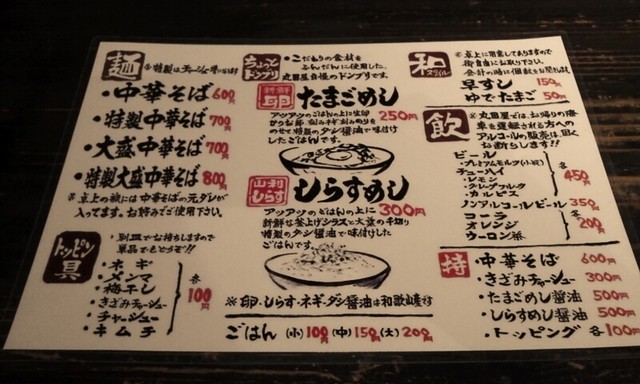 麺
※特製はチャーシュー増いります
・中華そば 600円
・特製中華そば 700円
・大盛中華そば 700円
・特製大盛中華そば 800円
※卓上の瓶には中華そばの元ダレが
入ってます。お好みでご使用下さい。
トッピン具
別皿でお持ちしますので
単品でもどうぞ!!
・ネギ
・メンマ
・梅干し
・きざみチャーシュー
・チャーシュー
・キムチ
各100円
ちょっとドンブリ
・こだわりの食材を
ふんだんに使用した。
丸田屋自慢のドンブリです。
新鮮卵 たまごめし
250円
アツアツのごはんの上に生卵
かつお節 刻みネギ 刻みのりを
のせて特製のダシ醤油で味付け
したごはんです。
山利しらす しらすめし
300円
アツアツのごはんの上に
新鮮な釜上げシラスと大葉の千切り
特製のダシ醤油で味付けした
ごはんです。
※卵・しらす・ネギ・ダシ醤油は和歌山産です
ごはん (小)100円 (中)150円 (大)200円
和スタイル
※卓上に用意してありますので
御自由にお取り下さい。
会計の時に個数をお聞きします。
早すし 150円
ゆでたまご 50円
飲
※丸田屋では、お帰りの際
車を運転される方への
アルコールの販売は固く
お断りします!!
ビール
・プレミアムモルツ(小瓶)
チューハイ
・レモン
・グレープフルーツ
・カルピス
各450円
ノンアルコールビール 350円
コーラ
オレンジ
ウーロン茶
各200円
持
・中華そば 600円
・きざみチャーシュー 300円
・たまごめし醤油 500円
・しらすめし醤油 500円
・トッピング 各100円